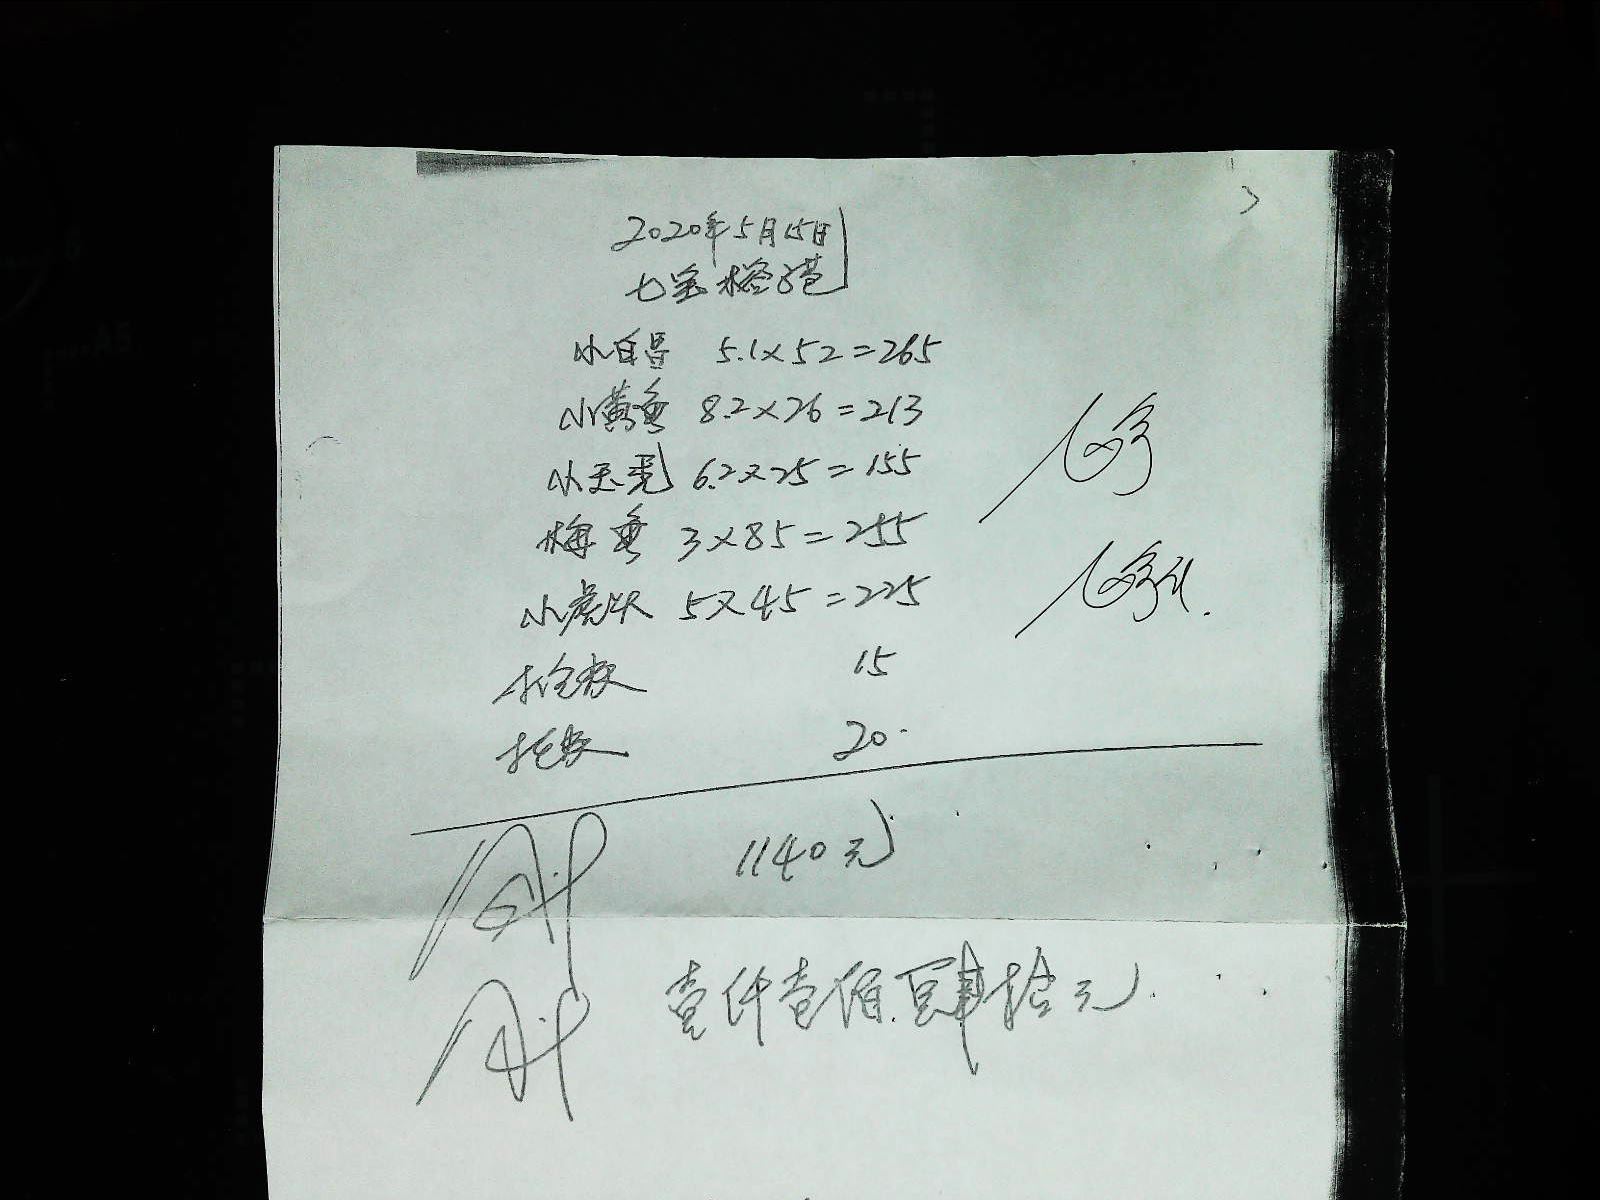 2020年5月15日
七宝榕港
小白昌 5.1×52=265
小黄鱼 8.2×26=213
小玉秃 6.2×25=155
梅鱼 3×85=255
小虎头 5×45=225
15
20
1140元
壹仟壹佰肆拾元